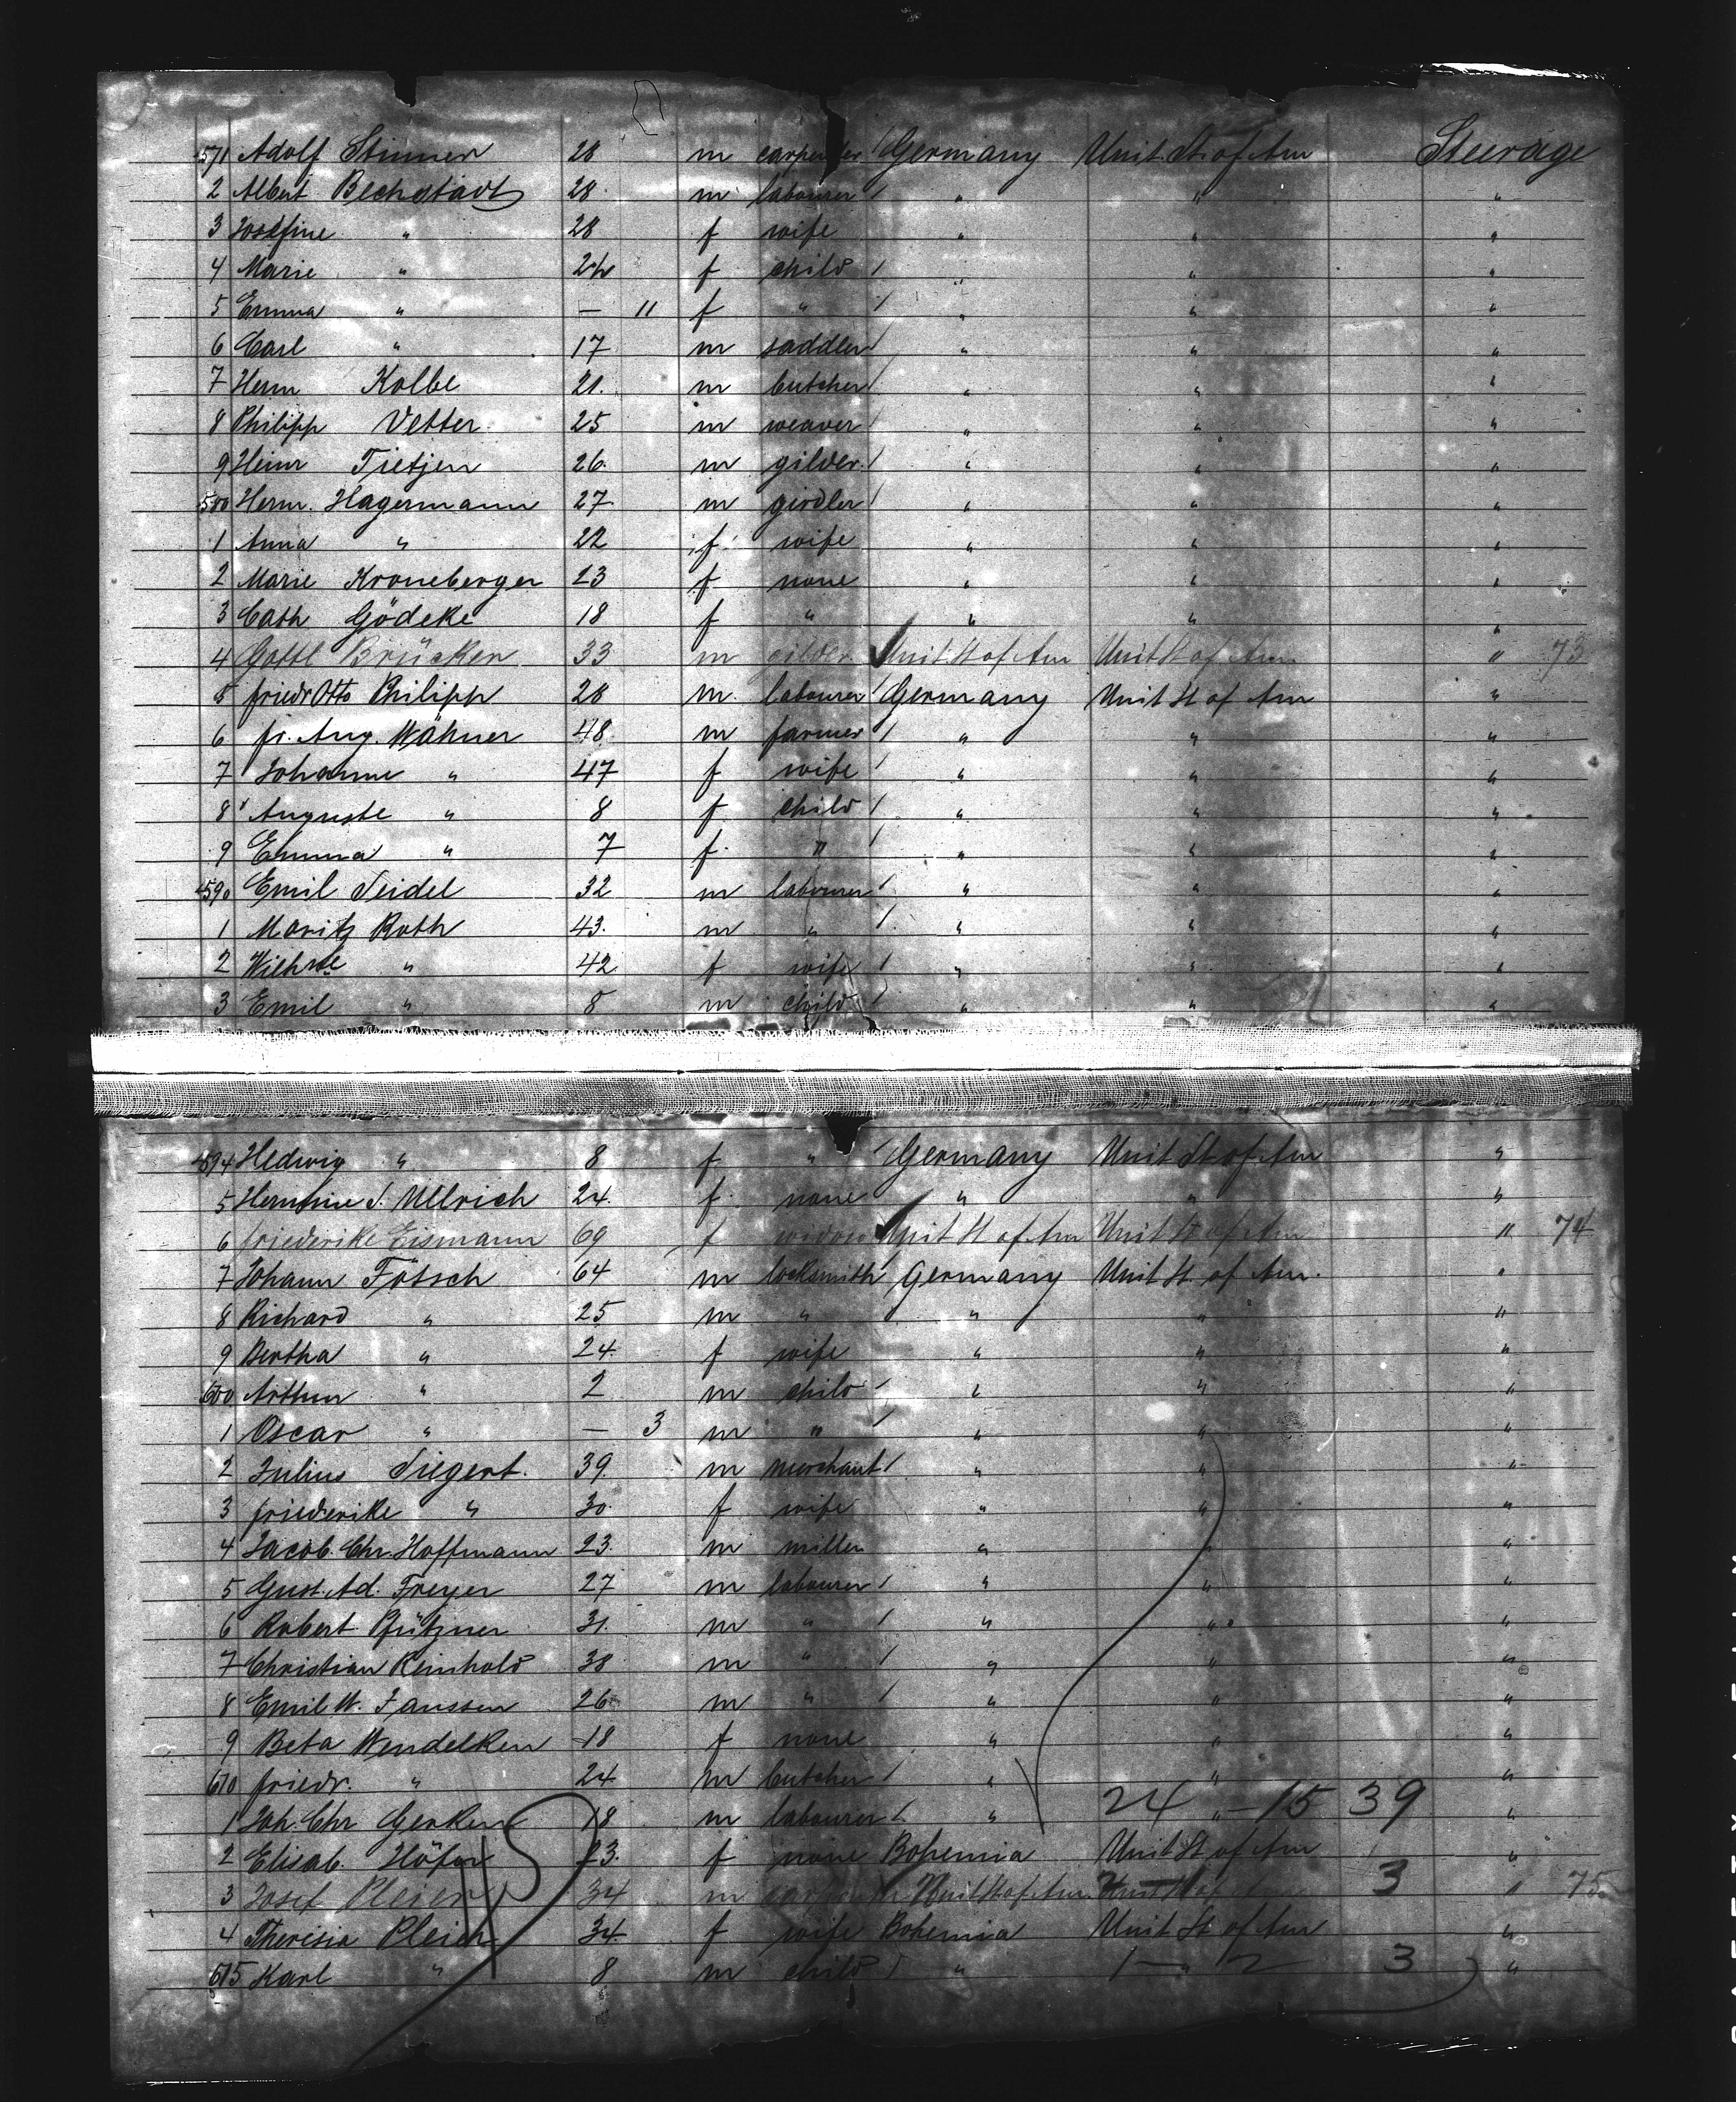 571 Adolf Stinner 28 m carpenter Germany Unit. St. of Am Steerage
2 Albert Bechstädt 28 m labourer " " "
3 Josefine " 28 f wife " " "
4 Marie " f child " " "
5 Emma " — 11 f " " " "
6 Carl " 17 m saddler " " "
7 Herm Kolbe 21. m butcher " " "
8 Philipp Vetter 25 m weaver " " "
9 Heinr Tietjen 26. m gilder " " "
580 Herm. Hagermann 27 m girdler " " "
1 Anna " 22 f wife " " "
2 Marie Kroneberger 23 f none " " "
3 Cath Gödeke 18 f " " " "
4 Gottl Brücken 33 m gilder Unit St of Am Unit St of Am. " 73
5 friedr Otto Philipp 28 m. labourer Germany Unit St of Am "
6 fr. Aug. Wähner 48 m farmer " " "
7 Johanne " 47 f wife " " "
8 Auguste " 8 f child " " "
9 Emma " 7 f. " " " "
590 Emil Seidel 32 m labourer " " "
1 Moritz Roth 43. m " " " "
2 " 42 f wife " " "
3 Emil " 8 m child " " "
594 Hedwig " 8 f " Germany Unit St of Am "
5 Hermine S. Ullrich 24. f. none " " "
6 friederike Eismann 69 f widow Unit St of Am Unit St of Am " 74
7 Johann Fötsch 64 m locksmith Germany Unit St. of Am. "
8 Richard " 25 m " " " "
9 Bertha " 24 f wife " " "
600 Arthur " 2 m child " " "
1 Oscar " — 3 m " " " "
2 Julius Siegert. 39. m merchant " " "
3 friederike " 30 f wife " " "
4 Jacob. Chr. Hoffmann 23. m miller " " "
5 Gust. Ad. Freyer 27 m labourer " " "
6 Robert Pfützner 31. m " " " "
7 Christian Reinhold 38 m " " " "
8 Emil W. Janssen 26 m " " " "
9 Beta Wendelken 18 f none " " "
610 friedr. " 24 m butcher " " "
1 Joh. Chr Gerken 18 m labourer " 24 " — 15 39 "
2 Elisab. Höfer 23. f none Bohemia Unit St of Am "
3 Josef Pleier 34 m carpenter Unit St of Am. Unit St of Am 3 " 75
4 Theresia Pleich 34 f wife Bohemia Unit St of Am "
615 Karl " 8 m child " 1 — " 2 3 "